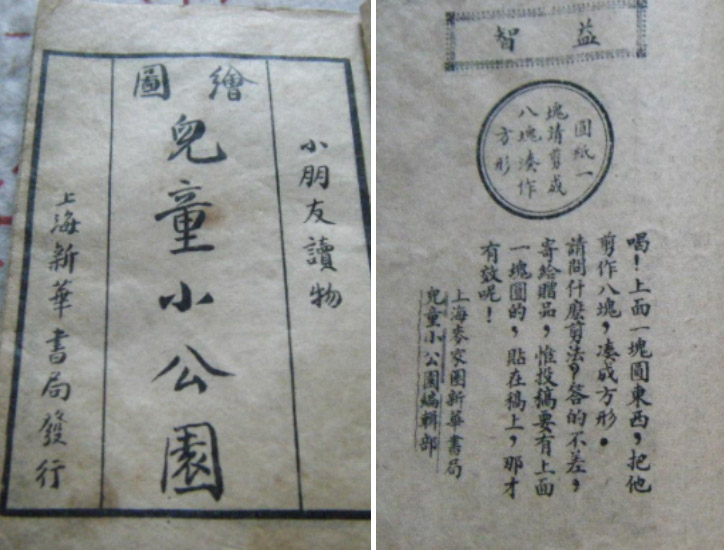 小朋友讀物
繪圖
兒童小公園
上海新華書局發行
益智
圓紙一
塊請剪成
八塊湊作
方形
喝！上面一塊圓東西，把他
剪作八塊，湊成方形。
請問什麼剪法，答的不差，
寄給贈品，惟投稿要有上面
一塊圓的，貼在稿上，那才
有效呢！
上海麥家圈新華書局
兒童小公園編輯部